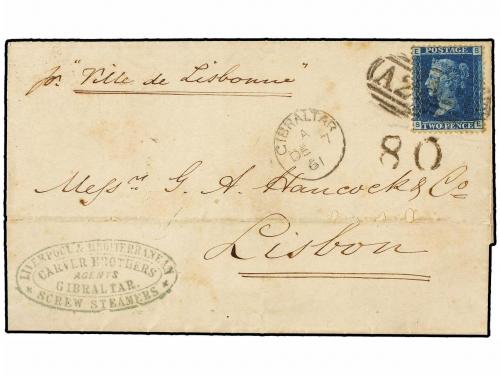 pr. "Ville de Lisbonne"
E B
POSTAGE
TWO PENCE
B E
A26
GIBRALTAR
A
DE 7
61
80
Messrs G. A. Hancock & Co
Lisbon
LIVERPOOL & MEDITERRANEAN
CARVER BROTHERS
AGENTS
GIBRALTAR.
* SCREW STEAMERS *